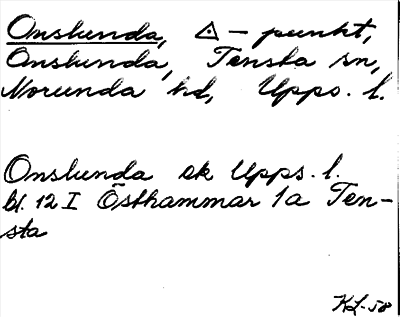 Onslunda, △ - punkt,
Onslunda, Tensta sn,
Norunda hd, Upps. l.
Onslunda ek Upps. l.
bl. 12 I Östhammar 1a Ten-
sta
KL-58